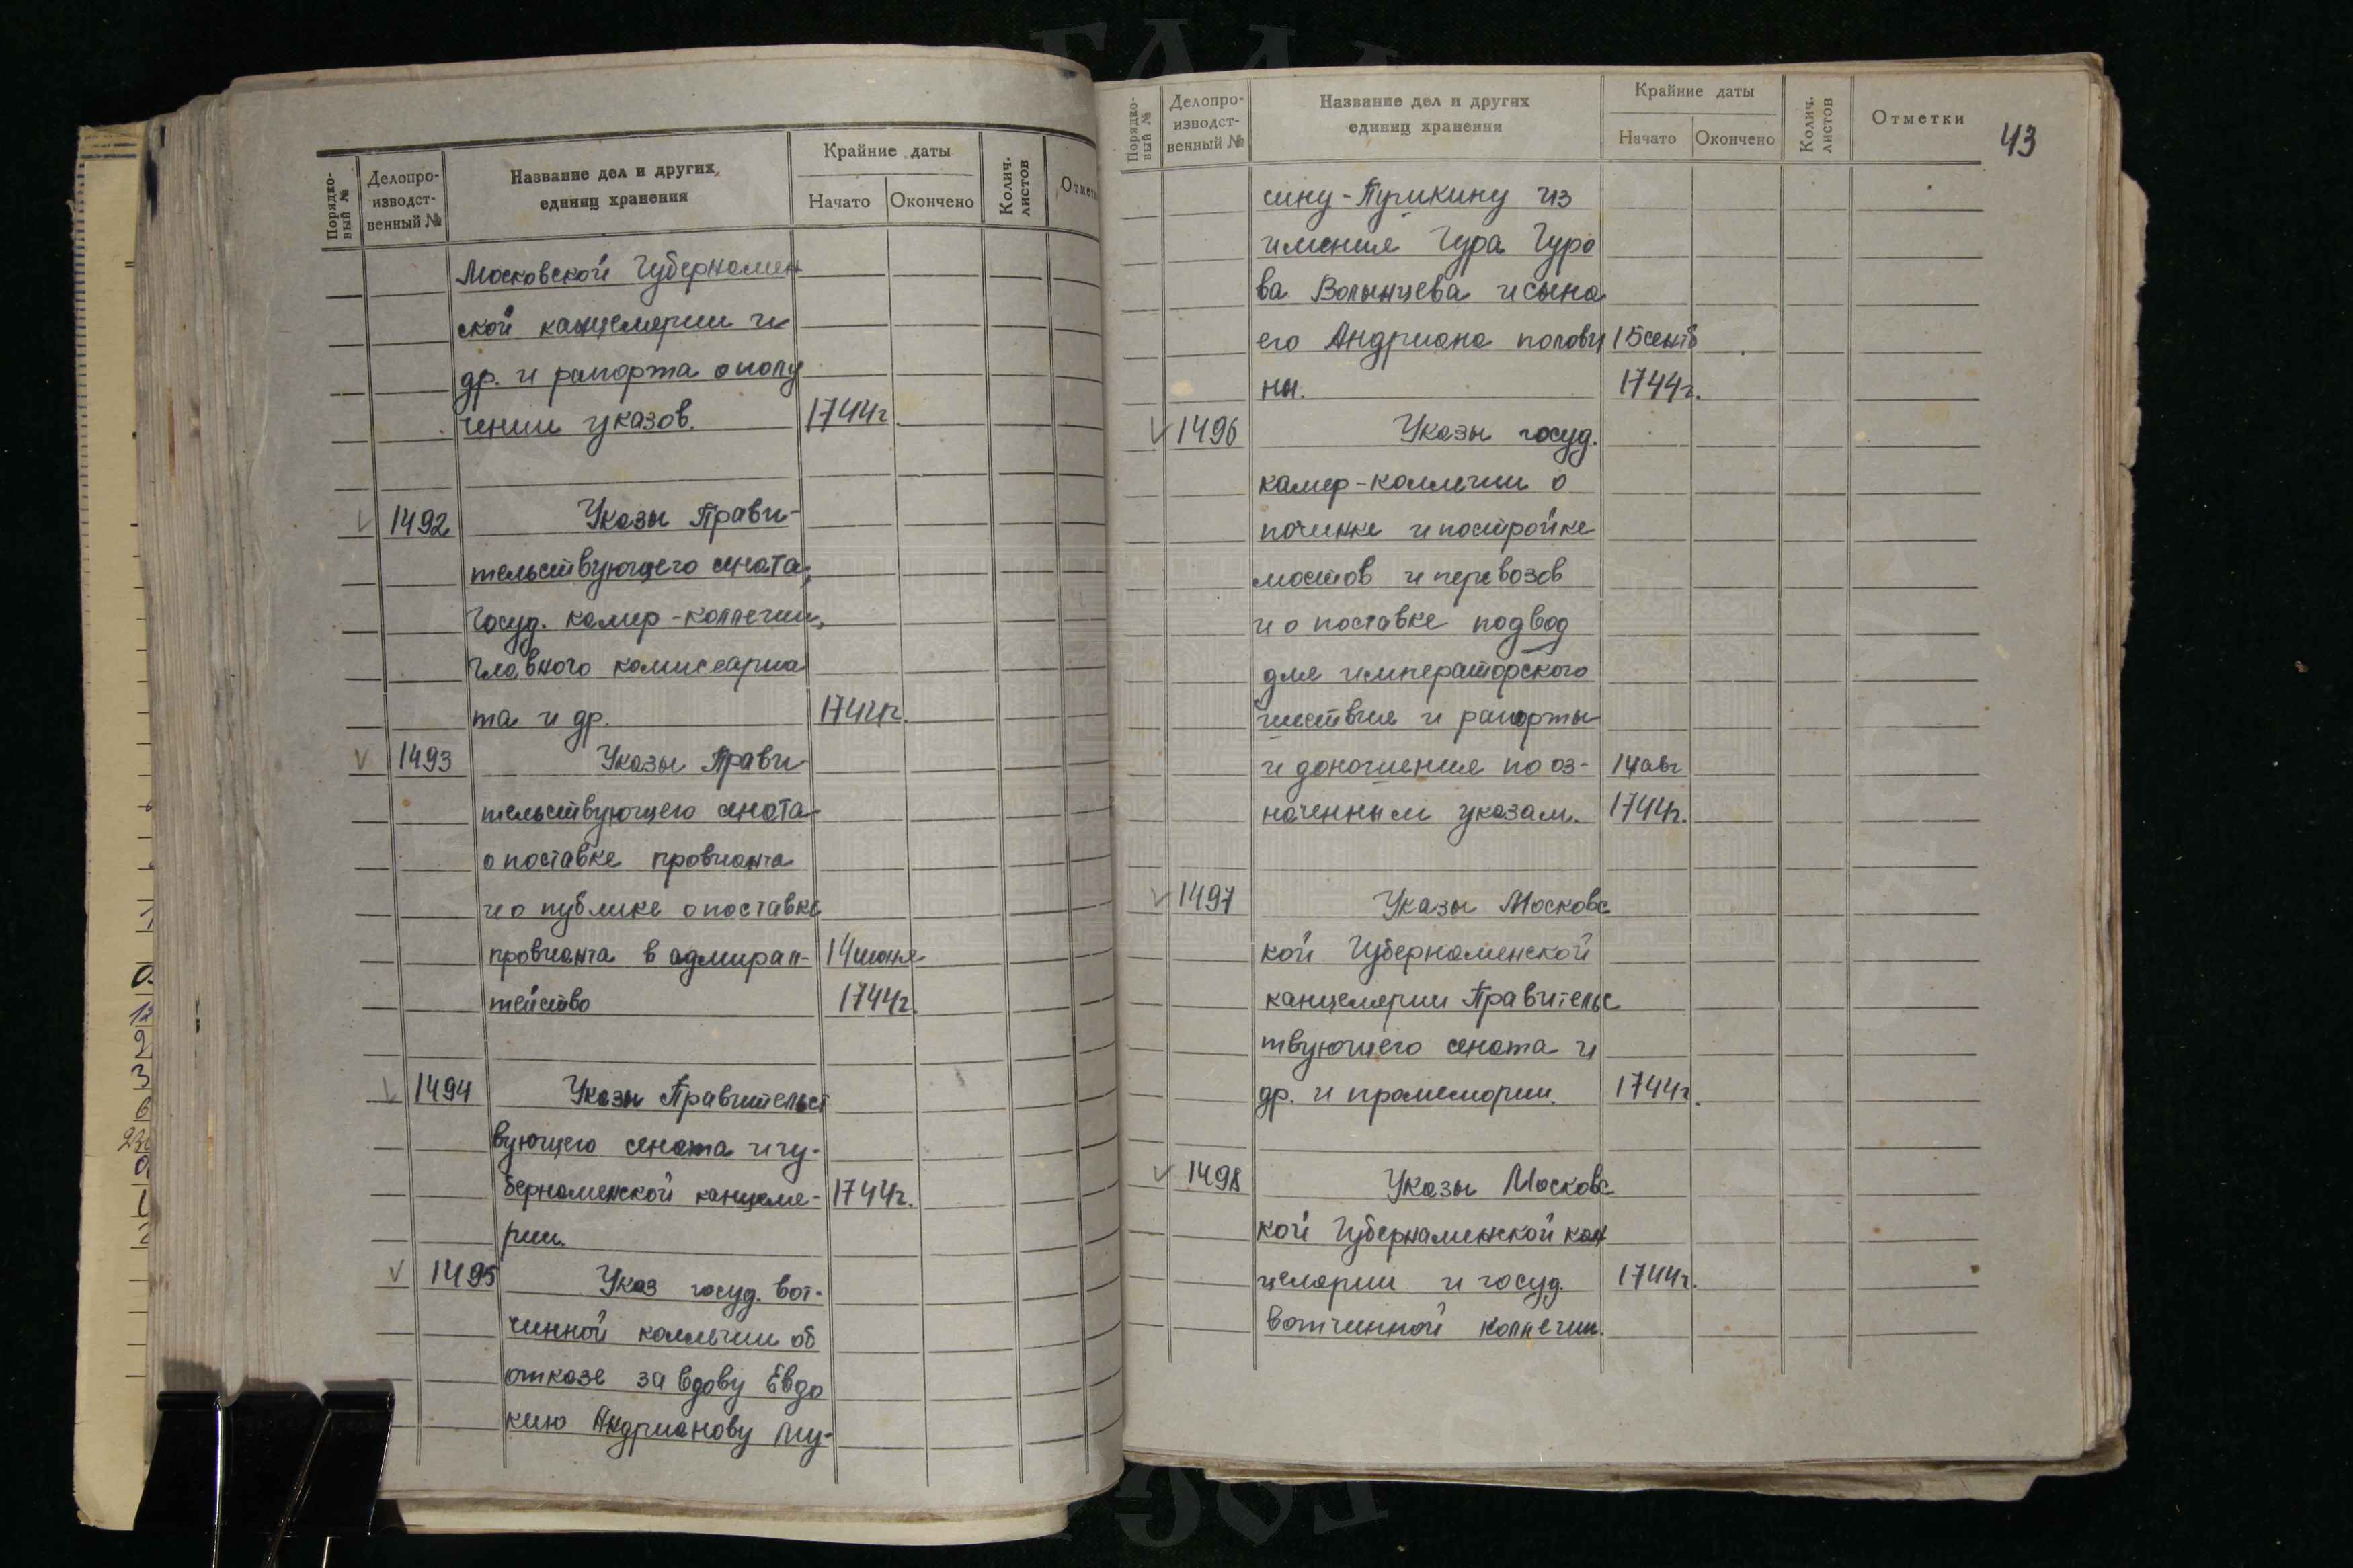 Порядко-
вый №
Делопро-
изводст-
венный №
Название дел и других
единиц хранения
Крайние даты
Начато
Окончено
Колич.
листов
Московской Губернамен
ской канцелярии и
др. и рапорта о полу
чении указов. 1744г
1492 Указы Прави-
тельствующего сената,
Госуд. камер-коллегии,
Главного комиссариа
та и др. 1744г.
1493 Указы Прави
тельствующего сената
о поставке провианта
и о публике о поставке
провианта в адмирал- 14 июня
тейство 1744г.
1494 Указы Правительст
вующего сената и гу-
бернаменской канцеля- 1744г.
рии.
1495 Указ госуд. вот-
чинной коллегии об
отказе за вдову Евдо
кию Андрианову Му-
Порядко-
вый №
Делопро-
изводст-
венный №
Название дел и других
единиц хранения
Крайние даты
Начато
Окончено
Колич.
листов
Отметки
43
сину-Пушкину из
имения Гура Гуро
ва Волынцева и сына
его Андриана полови 15 сентб
ны. 1744г.
1496 Указы госуд.
камер-коллегии о
починке и постройке
мостов и перевозов
и о поставке подвод
для императорского
шествия и рапорты
и доношения по оз- 14 авг
наченным указам. 1744г.
1497 Указы Московс
кой Губернаменской
канцелярии Правительс
твующего сената и
др. и промемории. 1744г.
1498 Указы Московс
кой Губернаменской кан
целярии и госуд. 1744г.
вотчинной коллегии.